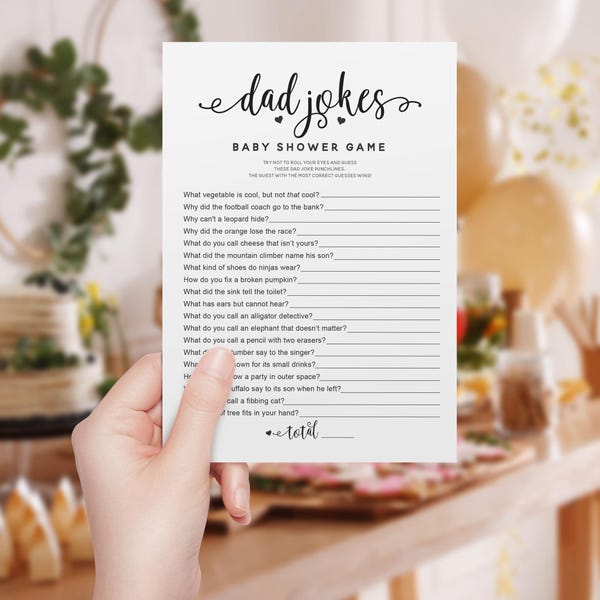 dad jokes
BABY SHOWER GAME
TRY NOT TO ROLL YOUR EYES AND GUESS
THESE DAD JOKE PUNCHLINES.
THE GUEST WITH THE MOST CORRECT GUESSES WINS!
What vegetable is cool, but not that cool?
Why did the football coach go to the bank?
Why can't a leopard hide?
Why did the orange lose the race?
What do you call cheese that isn't yours?
What did the mountain climber name his son?
What kind of shoes do ninjas wear?
How do you fix a broken pumpkin?
What did the sink tell the toilet?
What has ears but cannot hear?
What do you call an alligator detective?
What do you call an elephant that doesn't matter?
What do you call a pencil with two erasers?
What say to the singer?
for its small drinks?
a party in outer space?
say to its son when he left?
call a fibbing cat?
of tree fits in your hand?
total